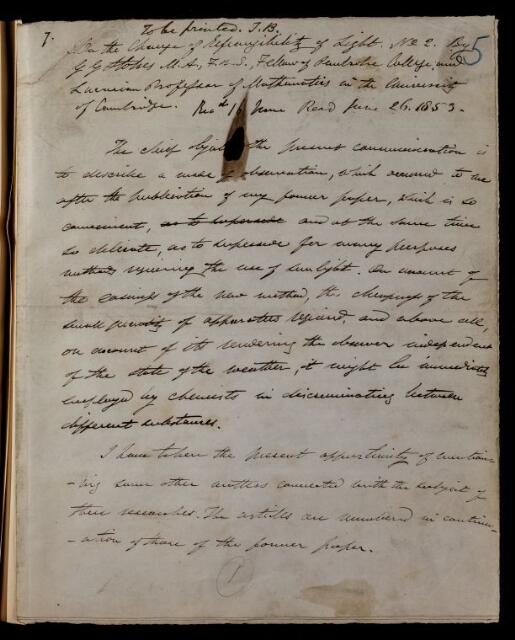 7.
To be printed. T.B.
5
On the Change of Refrangibility of Light. No 2. By
G G Stokes M.A., F.R.S., Fellow of Pembroke College, and
Lucasian Professor of Mathematics in the University
of Cambridge. Recd 16 June Read June 26. 1853.
The chief object the present communication is
to describe a mode of observation, which occurred to me
after the publication of my former paper, which is so
convenient, as to supersede and at the same time
so delicate, as to supersede for many purposes
methods requiring the use of sunlight. On account of
the easiness of the new method, the cheapness of the
small quantity of apparatus required, and above all,
on account of its rendering the observer independent
of the state of the weather, it might be immediately
employed by chemists in discriminating between
different substances.
I have taken the present opportunity of mention-
-ing some other matters connected with the subject of
these researches. The articles are numbered in continu-
-ation of those of the former paper.
1